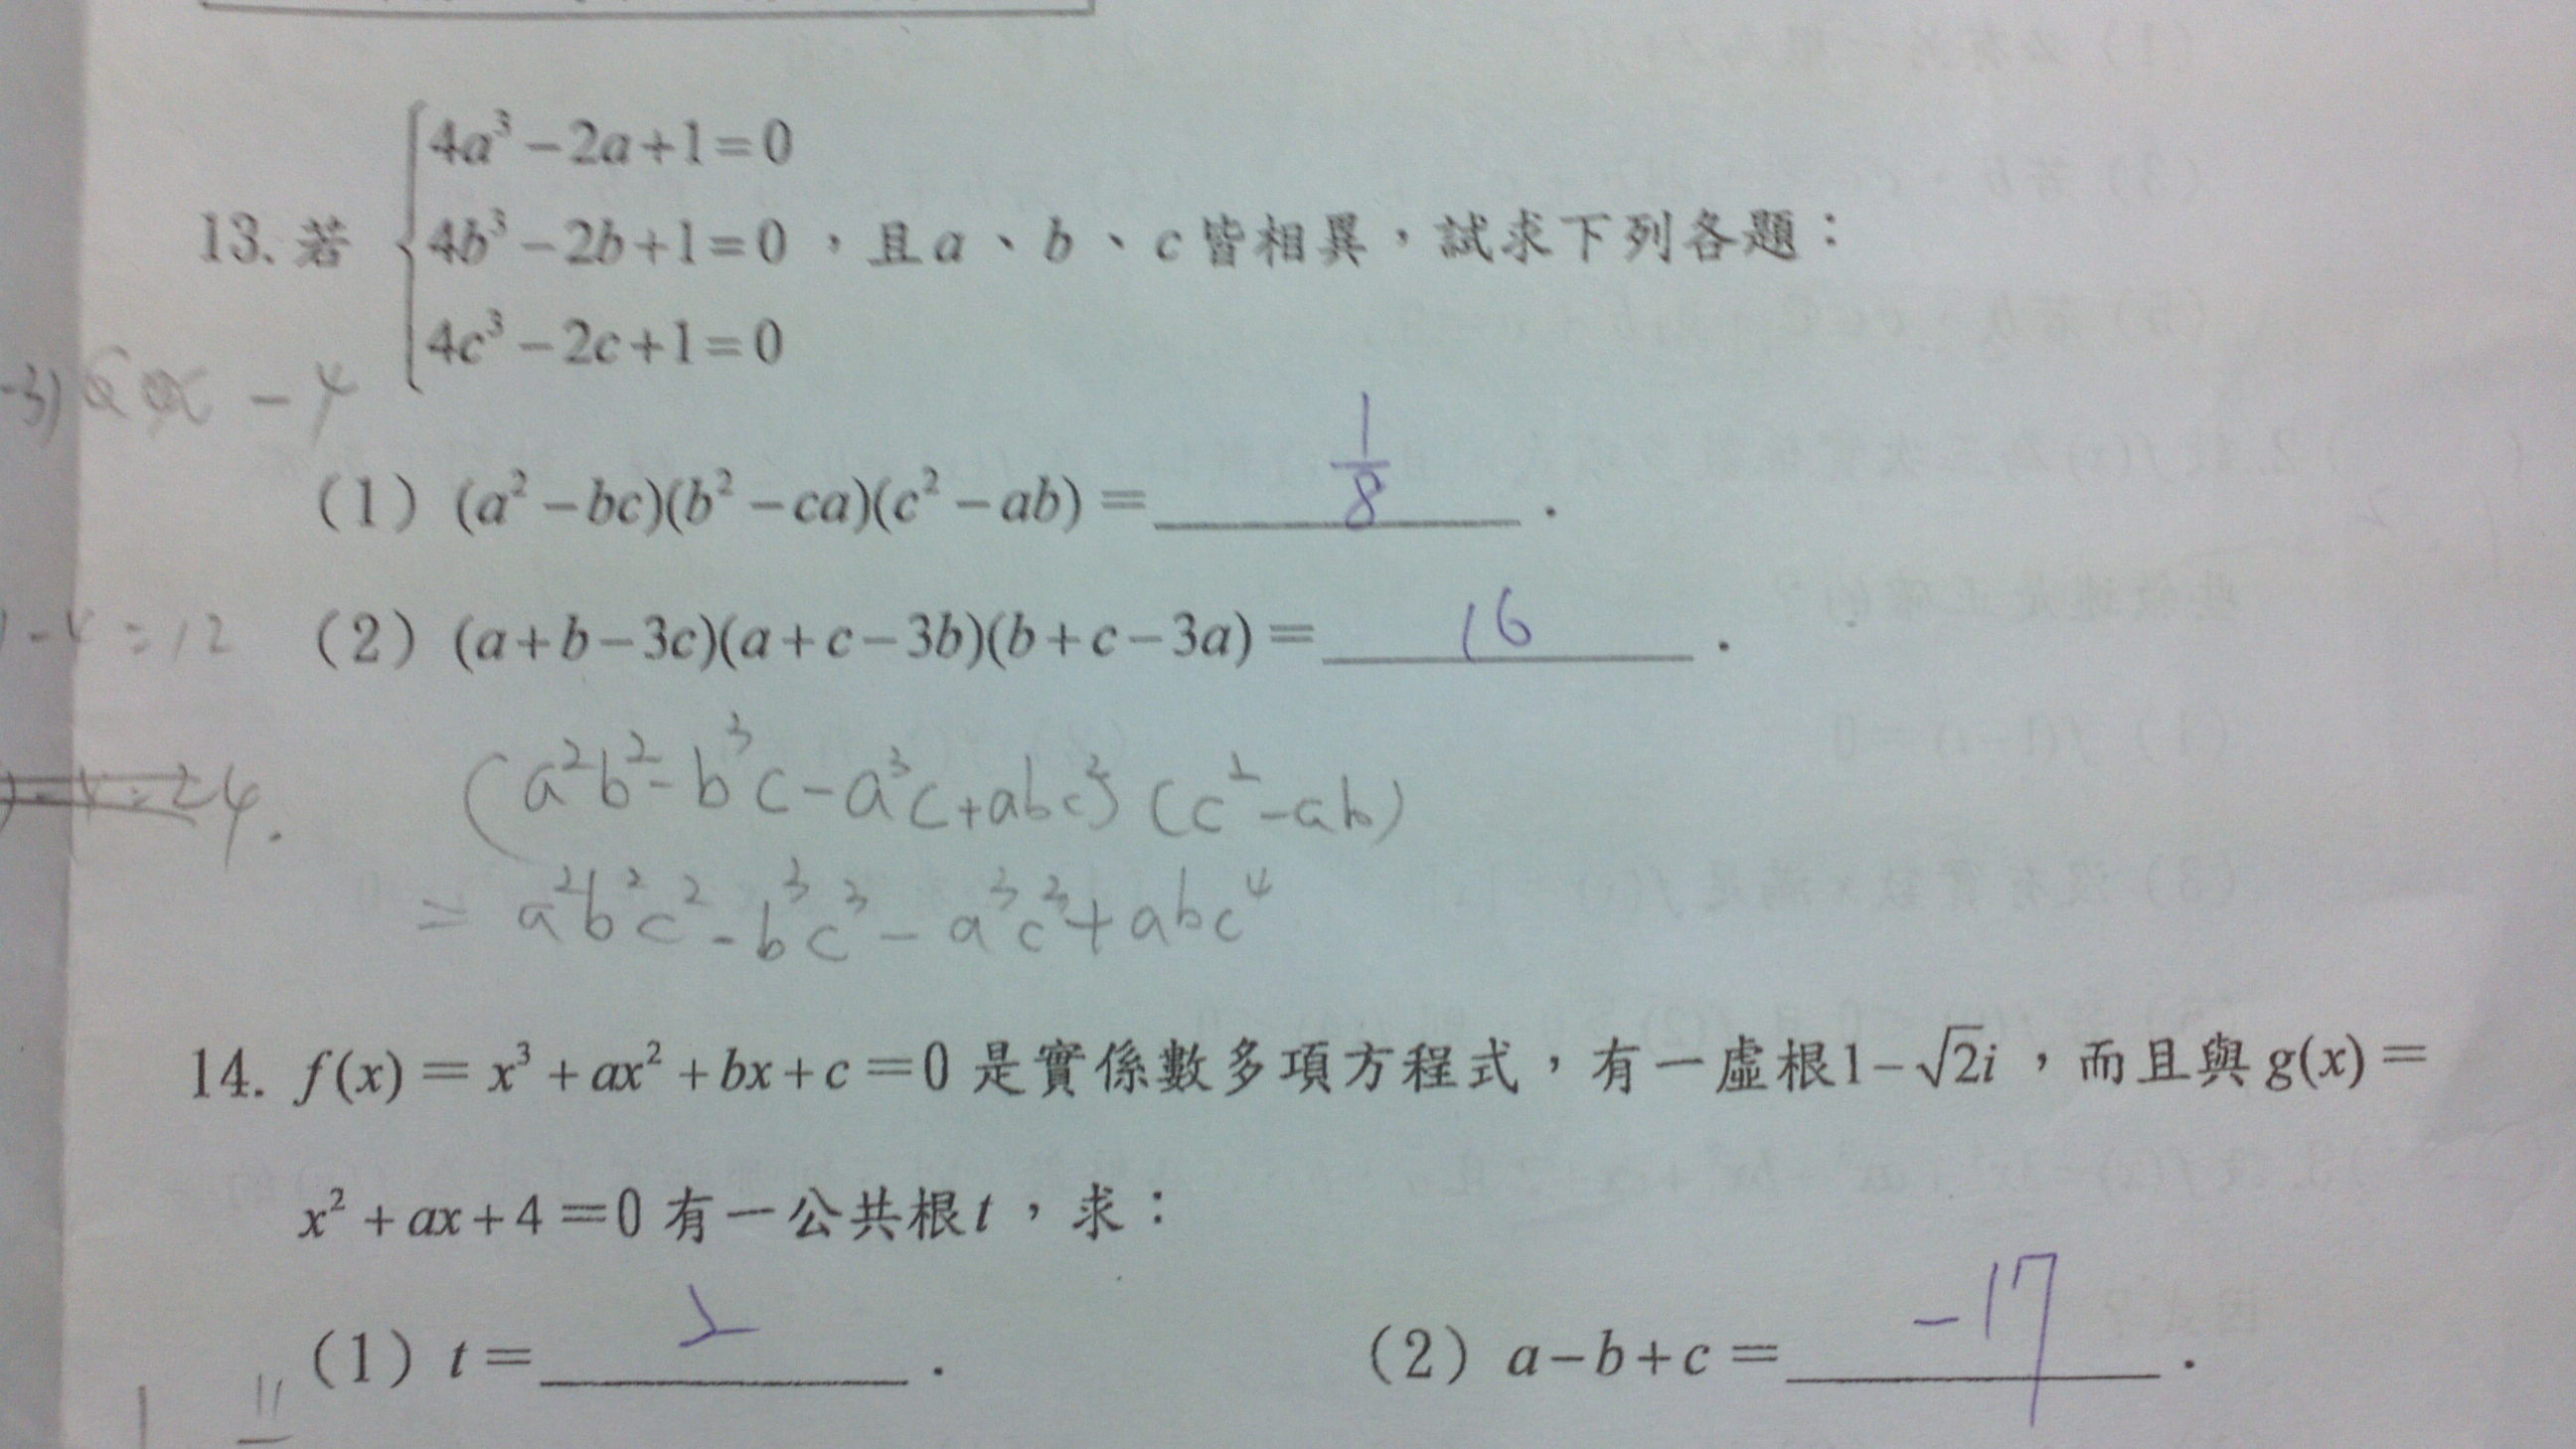 4a³−2a+1=0
13. 若 4b³−2b+1=0，且a、b、c皆相異，試求下列各題：
4c³−2c+1=0
-3) −4
(1) (a²−bc)(b²−ca)(c²−ab)= 1/8 .
-4=12 (2) (a+b−3c)(a+c−3b)(b+c−3a)= 16 .
(a²b²-b³c-a³c+abc²)(c²-ab)
= a²b²c²-b³c³-a³c³+abc⁴
14. f(x)=x³+ax²+bx+c=0 是實係數多項方程式，有一虛根1−√2i，而且與g(x)=
x²+ax+4=0 有一公共根t，求：
(1) t= 2 . (2) a−b+c= -17 .